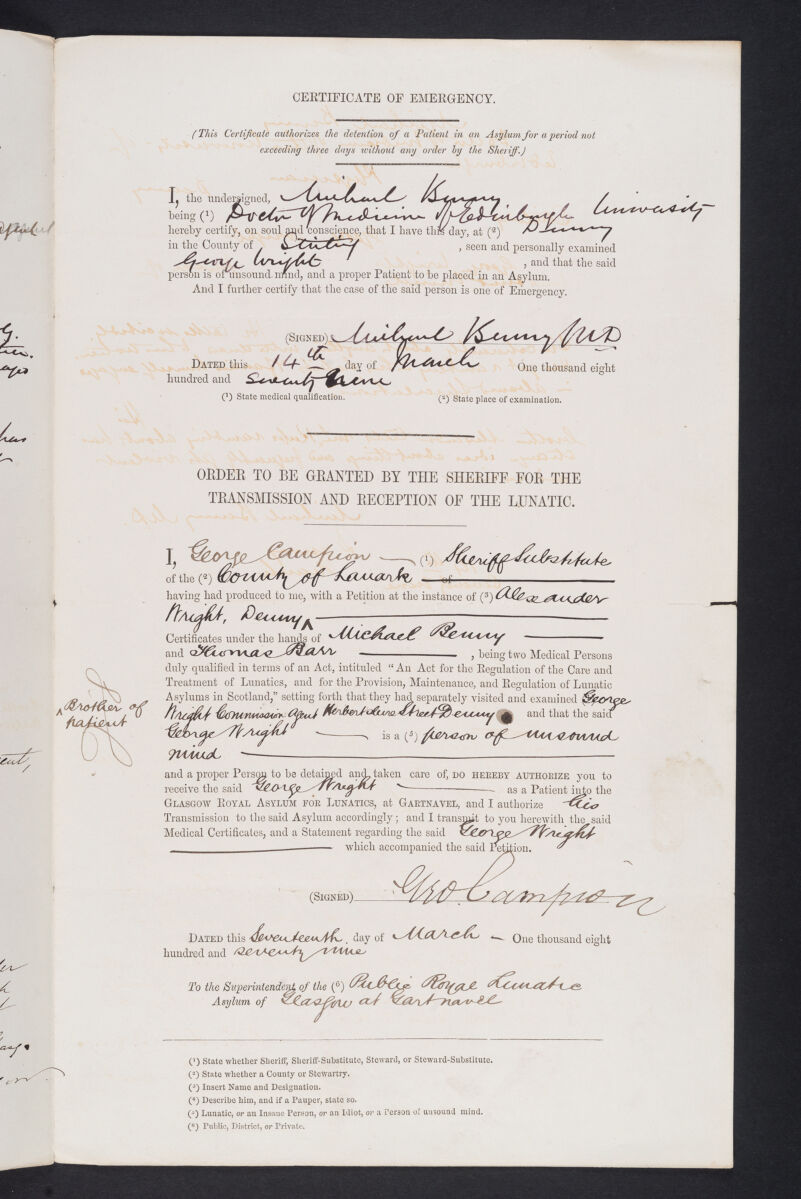 CERTIFICATE OF EMERGENCY.
(This Certificate authorizes the detention of a Patient in an Asylum for a period not
exceeding three days without any order by the Sheriff.)
I, the undersigned, Michael Benny
being (¹) Doctor of Medicine of Edinburgh University
hereby certify, on soul and conscience, that I have this day, at (²) Denny
in the County of Stirling , seen and personally examined
George Wright , and that the said
person is of unsound mind, and a proper Patient to be placed in an Asylum.
And I further certify that the case of the said person is one of Emergency.
(SIGNED) Michael Benny M.D
DATED this 14th day of March One thousand eight
hundred and seventy nine
(¹) State medical qualification. (²) State place of examination.
ORDER TO BE GRANTED BY THE SHERIFF FOR THE
TRANSMISSION AND RECEPTION OF THE LUNATIC.
I, George Campion (¹) Sheriff Substitute
of the (²) County of Lanark of
having had produced to me, with a Petition at the instance of (³) Alexander
Wright, Denny ^
^ Brother of
patient
Certificates under the hands of Michael Benny
and Thomas Barr , being two Medical Persons
duly qualified in terms of an Act, intituled “An Act for the Regulation of the Care and
Treatment of Lunatics, and for the Provision, Maintenance, and Regulation of Lunatic
Asylums in Scotland,” setting forth that they had separately visited and examined George
Wright Commission Agent Herbertshire Street Denny and that the said
George Wright is a (⁵) person of unsound
mind
and a proper Person to be detained and taken care of, DO HEREBY AUTHORIZE you to
receive the said George Wright as a Patient into the
GLASGOW ROYAL ASYLUM FOR LUNATICS, at GARTNAVEL, and I authorize his
Transmission to the said Asylum accordingly; and I transmit to you herewith the said
Medical Certificates, and a Statement regarding the said George Wright
which accompanied the said Petition.
(SIGNED) Geo. Campion
DATED this Seventeenth day of March One thousand eight
hundred and seventy nine
To the Superintendent of the (⁶) Public Royal Lunatic
Asylum of Glasgow at Gartnavel
(¹) State whether Sheriff, Sheriff-Substitute, Steward, or Steward-Substitute.
(²) State whether a County or Stewartry.
(³) Insert Name and Designation.
(⁴) Describe him, and if a Pauper, state so.
(⁵) Lunatic, or an Insane Person, or an Idiot, or a Person of unsound mind.
(⁶) Public, District, or Private.